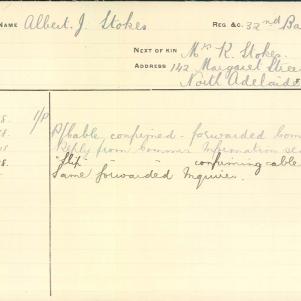 NAME Albert. J. Stokes REG &C. 32nd Ba
NEXT OF KIN Mrs R. Stokes.
ADDRESS 142 Margaret Stree
North Adelaide
confirmed - forwarded Com
Reply from Commr Information
" - - confirming able
Same forwarded Inquirer.